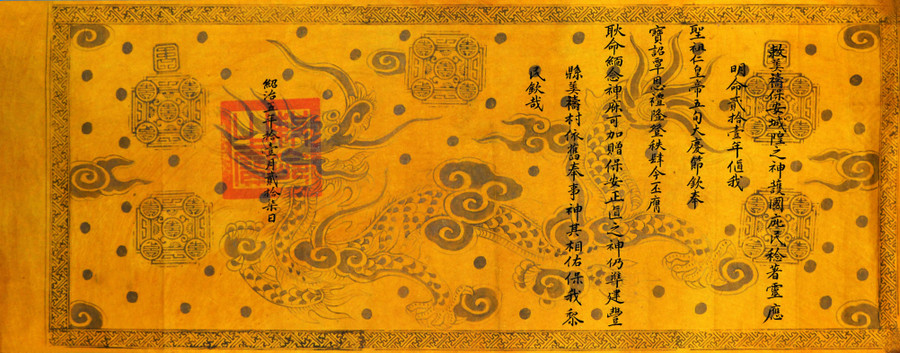 敕美禱保安城隍之神護國庇民稔著靈應
明命貳拾壹年值我
聖祖仁皇帝五旬大慶節欽奉
寶詔覃恩禮隆登秩肆今丕膺
耿命緬念神庥可加贈保安正直之神仍準建豐
縣美禱村依舊奉事神其相佑保我黎
民欽哉
紹治五年拾壹月貳拾柒日